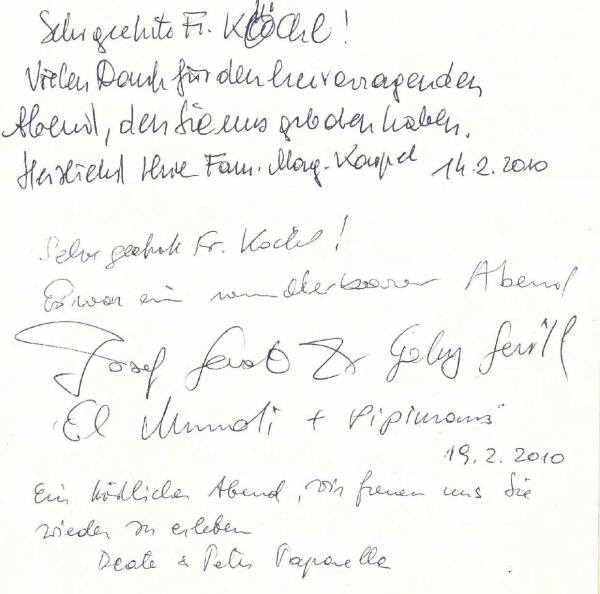 Sehr geehrte Fr. Köchl!
Vielen Dank für den hervorragenden
Abend, den Sie uns geboten haben.
Herzlichst Ihre Fam. 14.2.2010
Sehr geehrte Fr. Köchl!
Es war ein wunderbarer Abend
Josef &
El +
19.2.2010
Ein köstlicher Abend, wir freuen uns Sie
wieder zu erleben
Beate & Peter